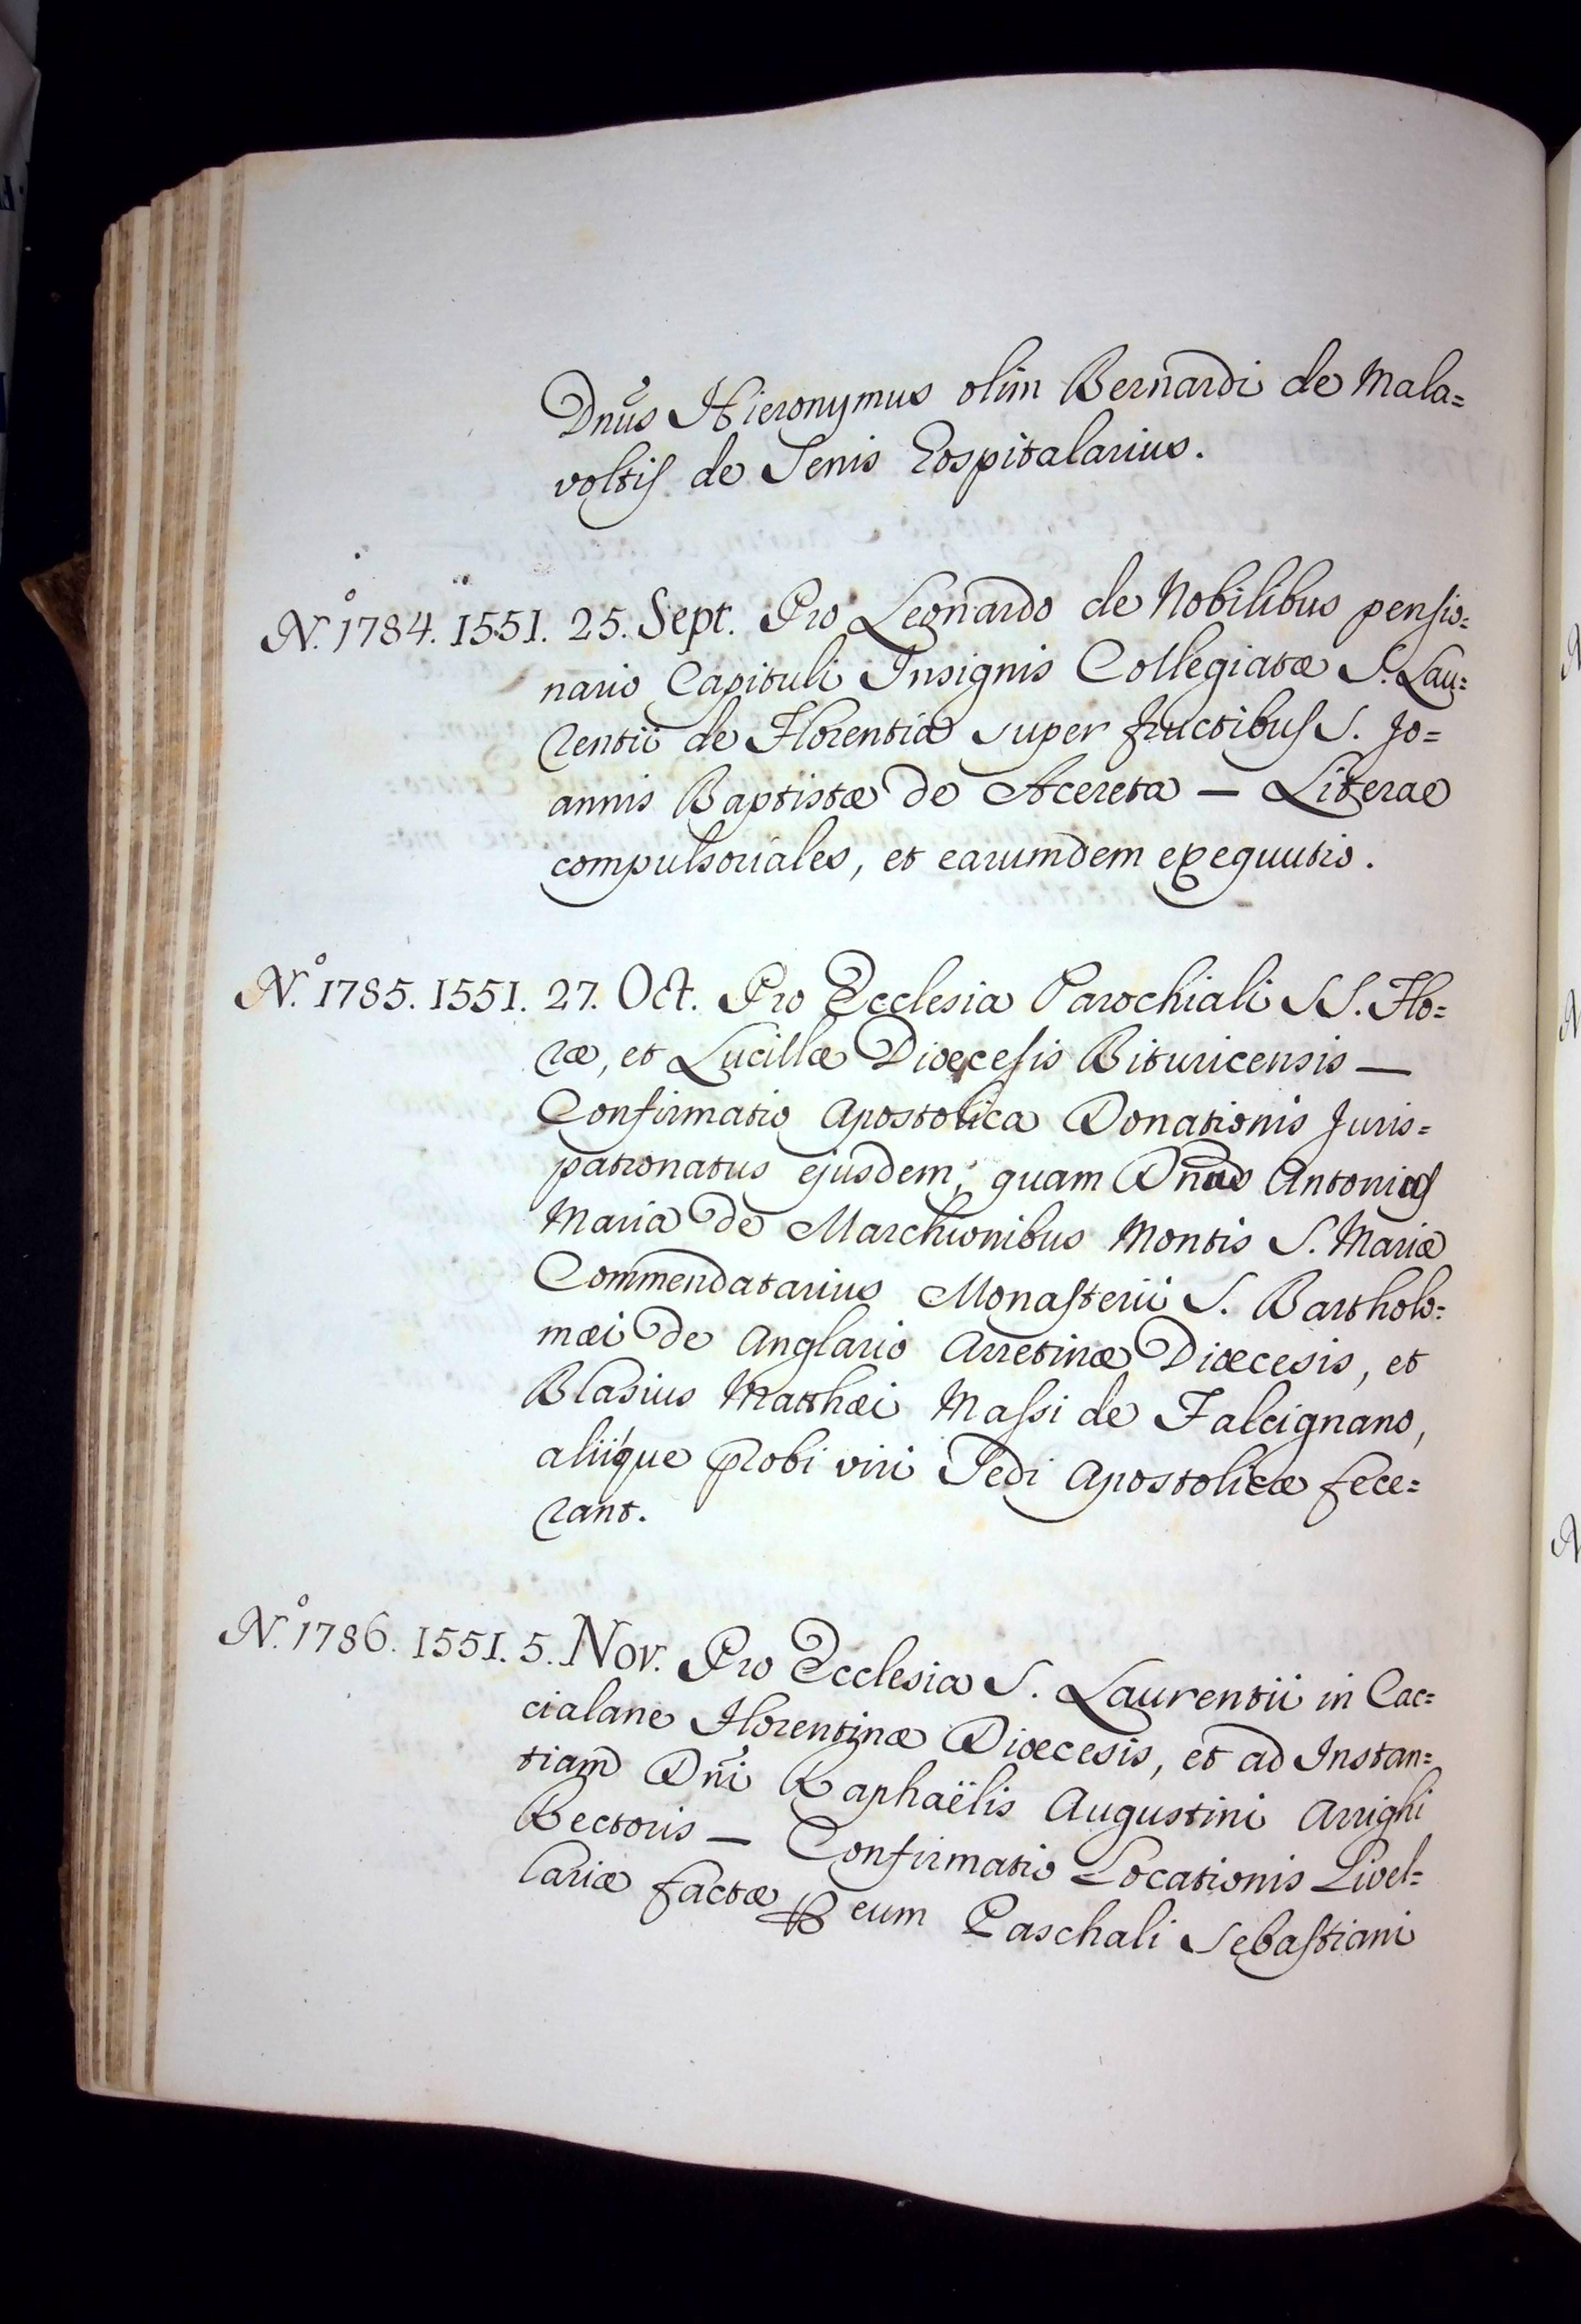 Dnūs Hieronymus olim Bernardi de Mala=
voltis de Senis Hospitalarius.
N.° 1784. 1551. 25. Sept. Pro Leonardo de Nobilibus pensio=
nario Capituli Insignis Collegiatæ S. Lau=
rentii de Florentia super fructibus S. Jo=
annis Baptistæ de Acereta — Literae
compulsoriales, et earumdem exequutio.
N.° 1785. 1551. 27. Oct. Pro Ecclesia Parochiali SS. Flo=
ræ, et Lucillæ Diœcesis Bituricensis —
Confirmatio Apostolica Donationis Juris=
patronatus ejusdem, quam Dnus Antonius
Maria de Marchionibus Montis S. Mariæ
Commendatarius Monasterii S. Bartholo=
mæi de Anglario Arretinæ Diœcesis, et
Blasius Matthæi Massi de Falcignano,
aliique probi viri Sedi Apostolicæ fece=
rant.
N.° 1786. 1551. 5. Nov. Pro Ecclesia S. Laurentii in Cac=
cialane Florentinæ Diœcesis, et ad Instan=
tiam Dn̄i Raphaëlis Augustini Arrighi
Rectoris — Confirmatio Locationis Livel=
lariæ factæ ꝑ eum Paschali Sebastiani